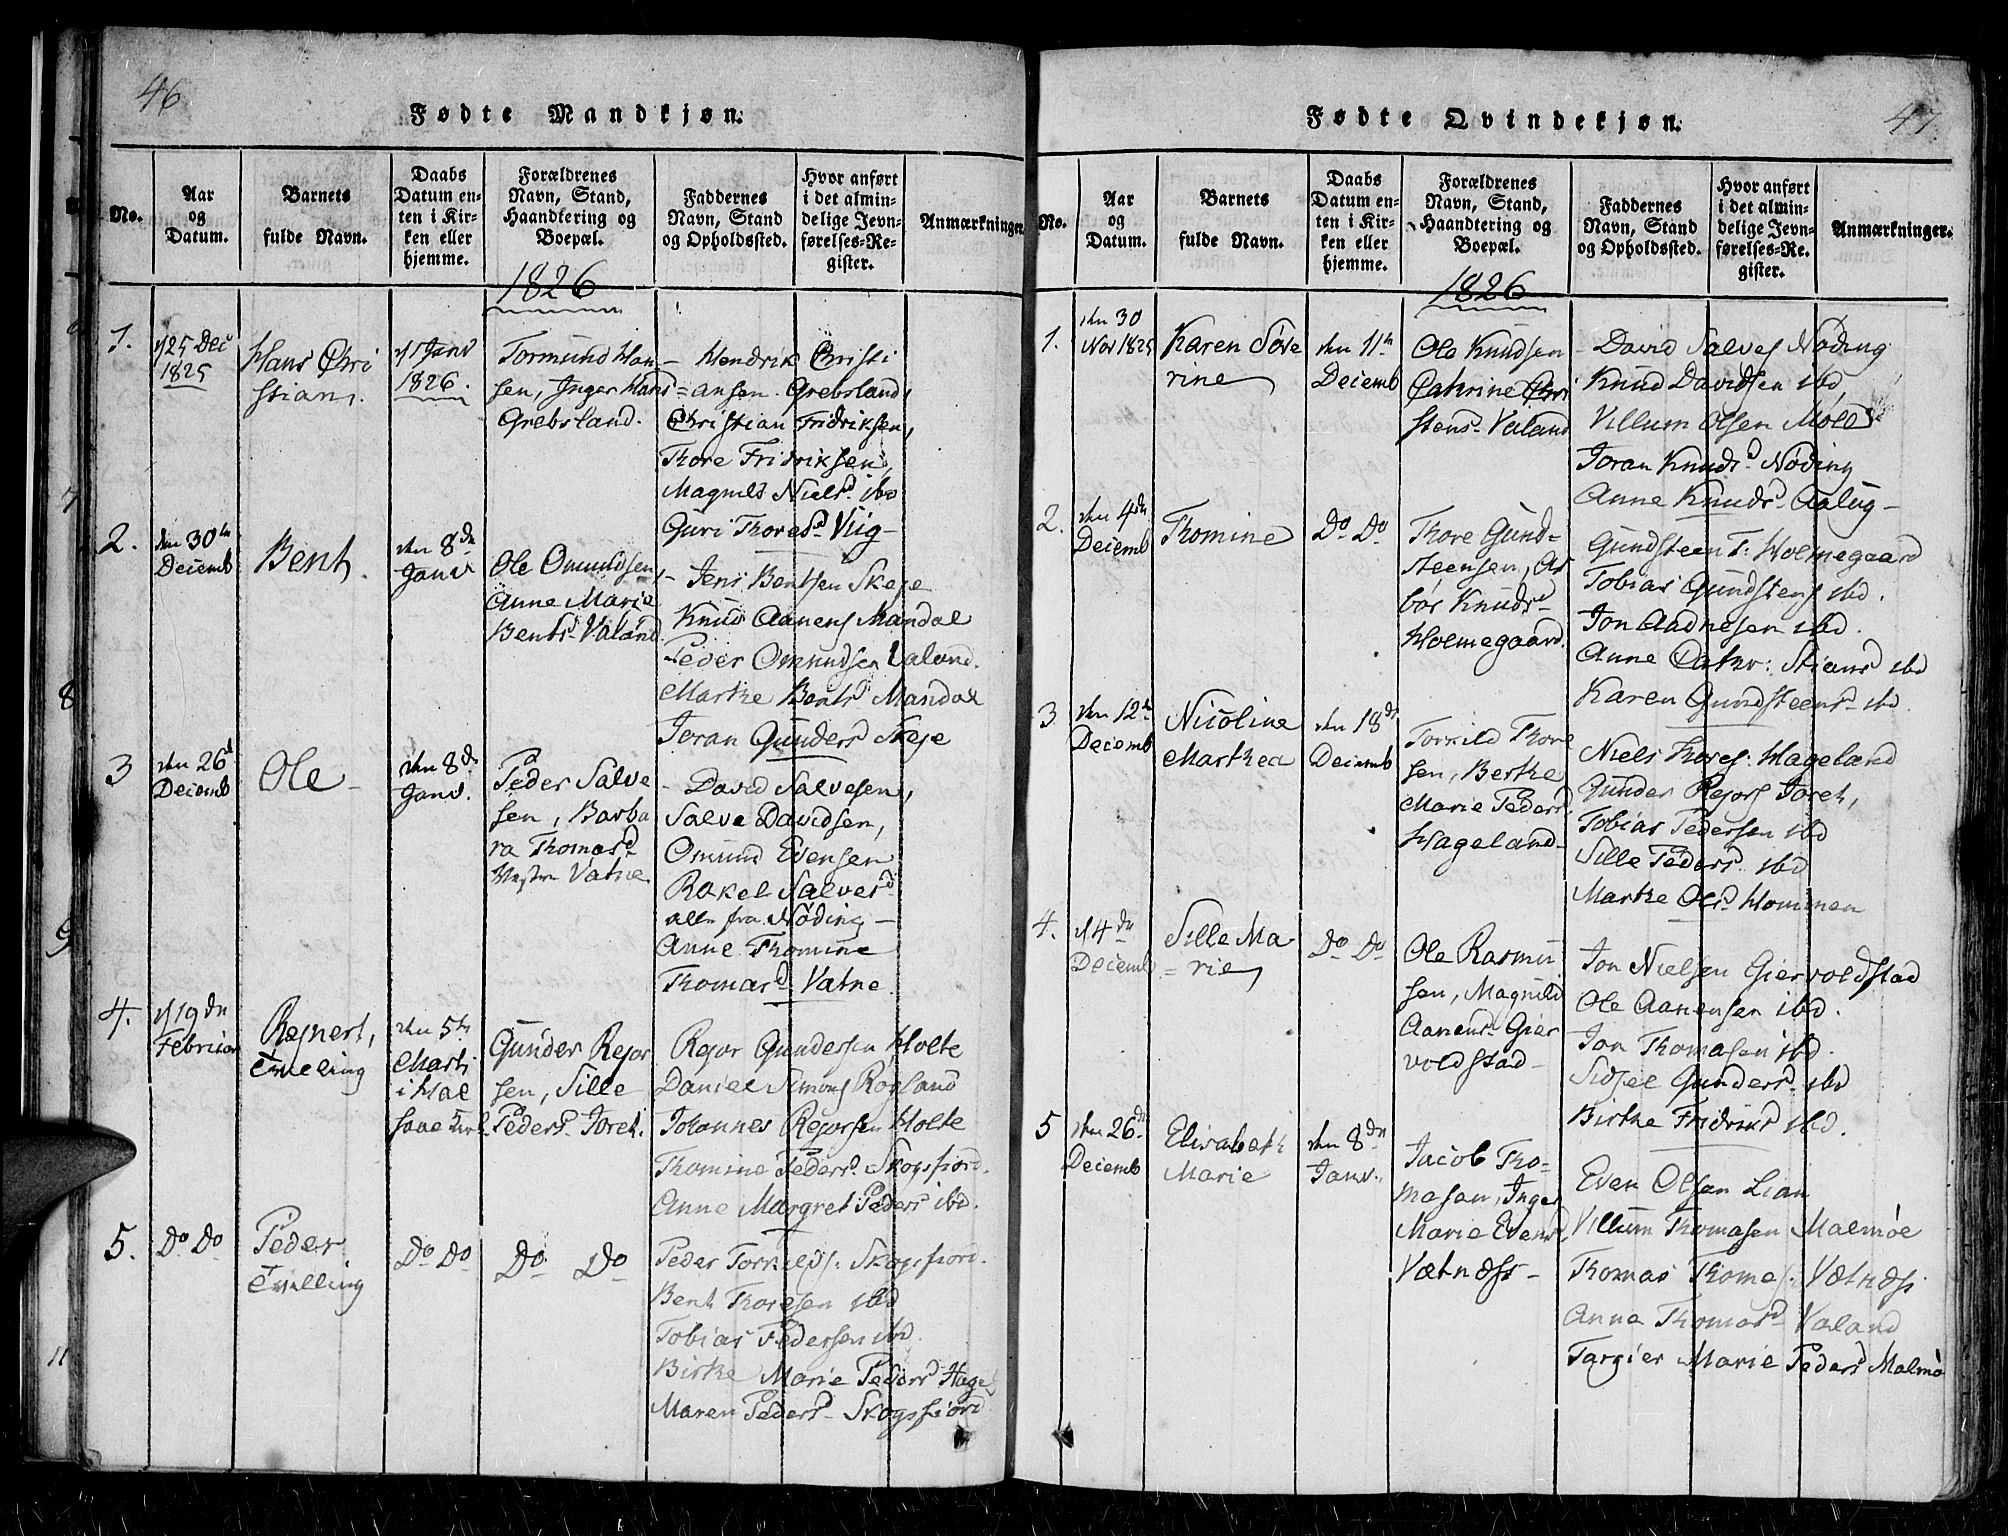 46
Fødte Mandkjøn.
No.
Aar
og
Datum.
Barnets
fulde Navn.
Daabs
Datum en-
ten i Kir-
ken eller
hjemme.
Forældrenes
Navn, Stand,
Haandtering og
Boepæl.
Faddernes
Navn, Stand
og Opholdssted.
Hvor anført
i det almin-
delige Jevn-
førelses-Re-
gister.
Anmærkninger.
1826
1.
d 25 Dec
1825
Hans Chri
stian,
d 1 Janv
1826.
Tormund Han
sen, Inger Hans
Grebsland.
- Hendrik Christi
= ansen. Grebsland,
Christian Fridriksen,
Thore Fridriksen,
Magnild Nielsd ibd
Guri Thoresd Viig-
2.
den 30te
Decemb
Bent.
den 8de
Janv
Ole Omundsen,
Anne Marie
Bentsd Valand.
- Jens Bentsen Skeje
Knud Aanens Mandal
Peder Omundsen Valand.
Marthe Bentsd Mandal
Joran Gundersd Skeje
3
den 26d
Decemb
Ole -
den 8de
Janv.
Peder Salve
sen, Barba
ra Thomasd
Vestre Vatne
- David Salvesen,
Salve Davidsen,
Omund Evensen
Rakel Salvesd
alle fra Nøding -
Anne Thomine
Thomasd Vatne.
4.
d 19de
Februar
Rejnert,
Tvelling
den 5te
Marti
i Hal
saae Kirk
Gunder Rejor
sen, Sille
Pedersd Joret.
Rejor Gundersen Holte
Daniel Simons Røgland
Johannes Rejorsen Holte
Thomine Pedersd Skogsfiord.
Anne Margret Pedersd ibd.
5.
Do Do
Peder
Tvilling
Do Do
Do Do
Peder Torkilds: Skogsfiord.
Bent Thoresen ibd
Tobias Pedersen ibd.
Birthe Marie Pedersd Hagel
Maren Pedersd Skogsfiord
47
Fødte Qvindekjøn.
No.
Aar
og
Datum.
Barnets
fulde Navn.
Daabs
Datum en-
ten i Kir-
ken eller
hjemme.
Forældrenes
Navn, Stand,
Haandtering og
Boepæl.
Faddernes
Navn, Stand
og Opholdssted.
Hvor anført
i det almin-
delige Jevn-
førelses-Re-
gister.
Anmærkninger.
1826
1.
den 30
Nov 1825
Karen Søve
rine,
den 11te
Decemb
Ole Knudsen
Cathrine Chri
stensd Valand
- David Salves Nøding
Knud Davidsen ibd
Villum Olsen Møll
Joran Knudsd Nøding
Anne Knudsd
2.
den 4de
Decemb
Thomine
Do Do
Thore Gund-
steensen, As
bør Knudsd
Holmegaard.
Gundsteen T: Holmegaard
Tobias Gundstens ibd.
Jon Aadnesen ibd.
Anne Cathr: Stiansd ibd
Karen Gundsteensd ibd.
3
den 12te
Decemb
Nicoline
Marthea
den 18de
Decemb
Torkild Thore
sen, Berthe
Marie Pedersd
Hageland-
Niels Thores: Hageland
Gunder Rejors Joret,
Tobias Pedersen ibd
Sille Pedersd ibd
Marthe Olsd Hommen
4.
d 4de
Decemb
Sille Ma
= rie,
Do Do
Ole Rasmu
sen, Magnild
Aanensd Gier
voldstad-
Jon Nielsen Giervoldstad
Ole Aanensen ibd.
Jon Thomasen ibd.
Sidsel Gundersd ibd
Birthe Fridriksd ibd.
5
den 26de
Decemb
Elisabeth
Marie
den 8de
Janv.
Jacob Tho-
masen, Inger
Marie Evensd
Vætnøss-
Even Olsen Lian
Villum Thomasen Malmøe
Thomas Thomes. Vætnøss
Anne Thomasd Valand
Targier Marie Pedersd Malmø